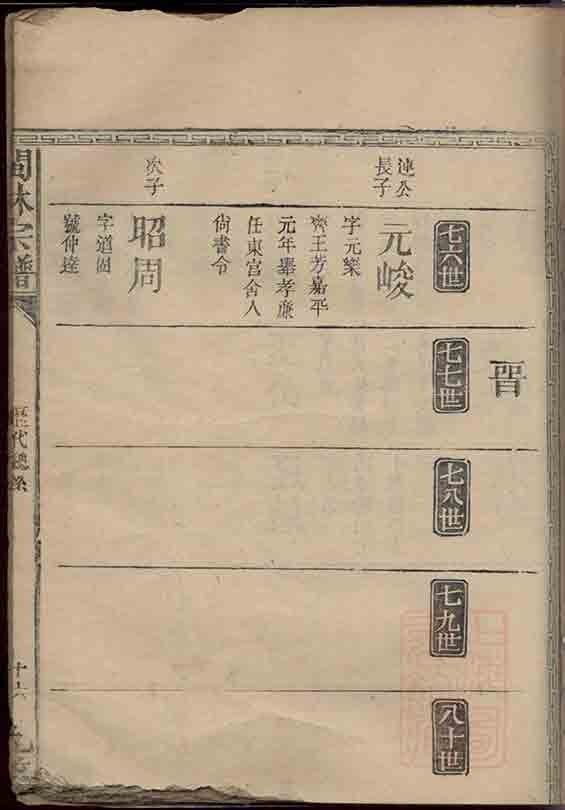 晋
七六世
七七世
七八世
七九世
八十世
連公
長子
元峻
字元樂
齊王芳嘉平
元年舉孝廉
任東宮舍人
尚書令
次子
昭周
字道固
號仲達
林宗譜
歷代總系
十六